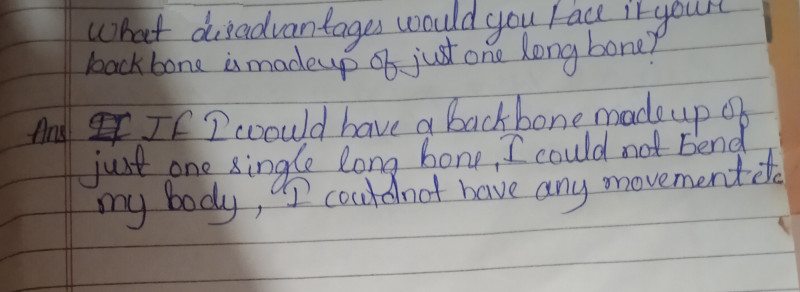 What disadvantages would you face if your
backbone is madeup of just one long bone?
Ans If I would have a backbone madeup of
just one single long bone, I could not bend
my body, I couldnot have any movement etc